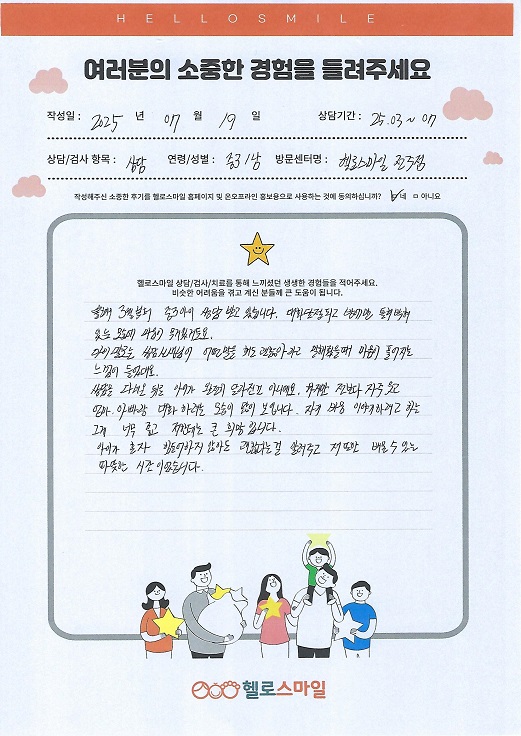 HELLOSMILE
여러분의 소중한 경험을 들려주세요
작성일 : 2025 년 07 월 19 일 상담기간 : 25.03 ~ 07
상담/검사 항목 : 상담 연령/성별 : 중3/남 방문센터명 : 헬로스마일 전주점
작성해주신 소중한 후기를 헬로스마일 홈페이지 및 온오프라인 홍보용으로 사용하는 것에 동의하십니까? 네 ㅁ 아니요
헬로스마일 상담/검사/치료를 통해 느끼셨던 생생한 경험들을 적어주세요.
비슷한 어려움을 겪고 계신 분들께 큰 도움이 됩니다.
올해 3월부터 중3아이 상담 받고 있습니다. 대화단절되고 방에만 틀어박혀
있는 모습에 마음이 무거웠어요.
상담선생님이 어떤말을 해도 괜찮아 라고 말해줬을때 마음이 풀어지는
느낌이 들었대요.
상담을 다녀온 뒤로 아이가 완전히 달라진건 아니에요. 하지만 전보다 자주 웃고
엄마, 아빠랑 대화 하려는 모습이 많이 보입니다. 자기 마음 이야기하려고 하는
그게 너무 좋고 저한테는 큰 희망 입니다.
아이가 혼자 힘들어하지 않아도 괜찮다는걸 알려주고 저 또한 배울 수 있는
따뜻한 시간 이었습니다.
헬로스마일